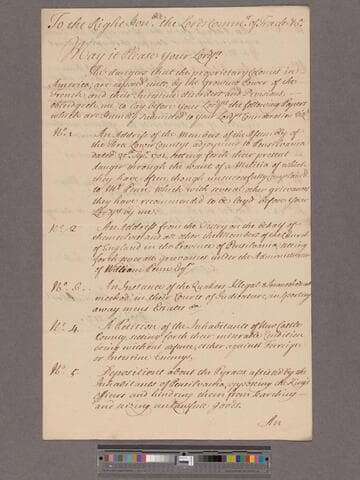 To the Right Hon.ble the Lords Comm.rs of Trade &c.
May it Please Your Lord.ps
The dangers that the proprietary Colonies in
America, are exposed unto, by the growing Power of the
French and their Intestine distrust and Divisions,
obliedgeth me to lay before Your Lord.ps the following Papers
which are Humbly submitted to Your Lord.ps Consideration Viz.t
No. 1. An Address of the Members of the Assembly of
the three Lower Countys adjoyning to Pensilvania
dated setting forth their present
danger through the want of a Militia of which
they have often though unsuccessfully complained
to Mr. Penn, which with several other grievances
they have recommended to be lay'd before Your
Lord.ps by me.
No. 2. An Address from the Vestry on the behalf of
themselves and all other the Members of the Church
of England in the Province of Pensilvania, setting
forth severall grievances under the Administration
of William Penn Esq.r
No. 3. An Instance of the Quakers Illegal
method, in their Courts of Judicature, in
away mens Estates
No. 4. A Petition of the Inhabitants of New Castle
County, setting forth their miserable Condition
being without defence, either against Foreign
or Intestine Enemys.
No. 5. Depositions about the
Inhabitants of Pensilvania, opposing the King's
Officers and hindring them from Searching
and seizing unlawful goods.
An